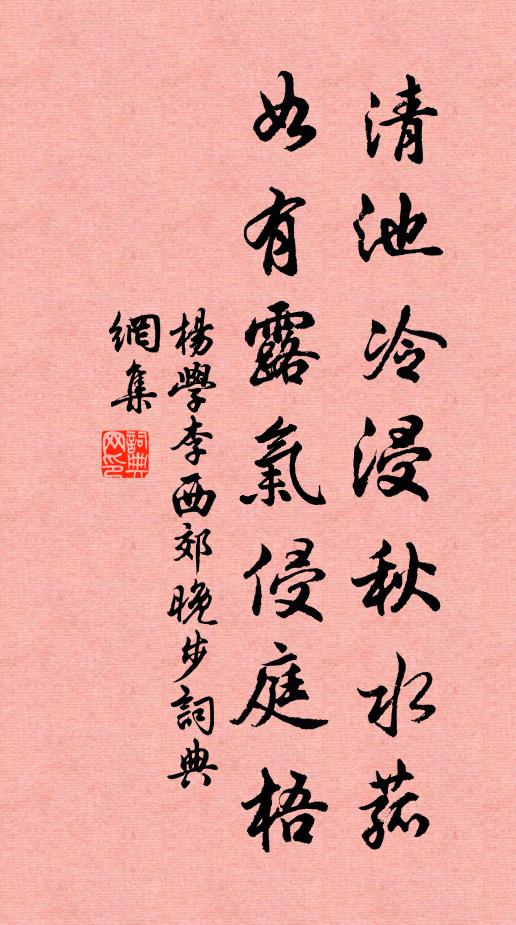 清池冷浸秋水菰
如有露氣侵庭梧
楊學李西郊晚步詞典
網集
詞典網印